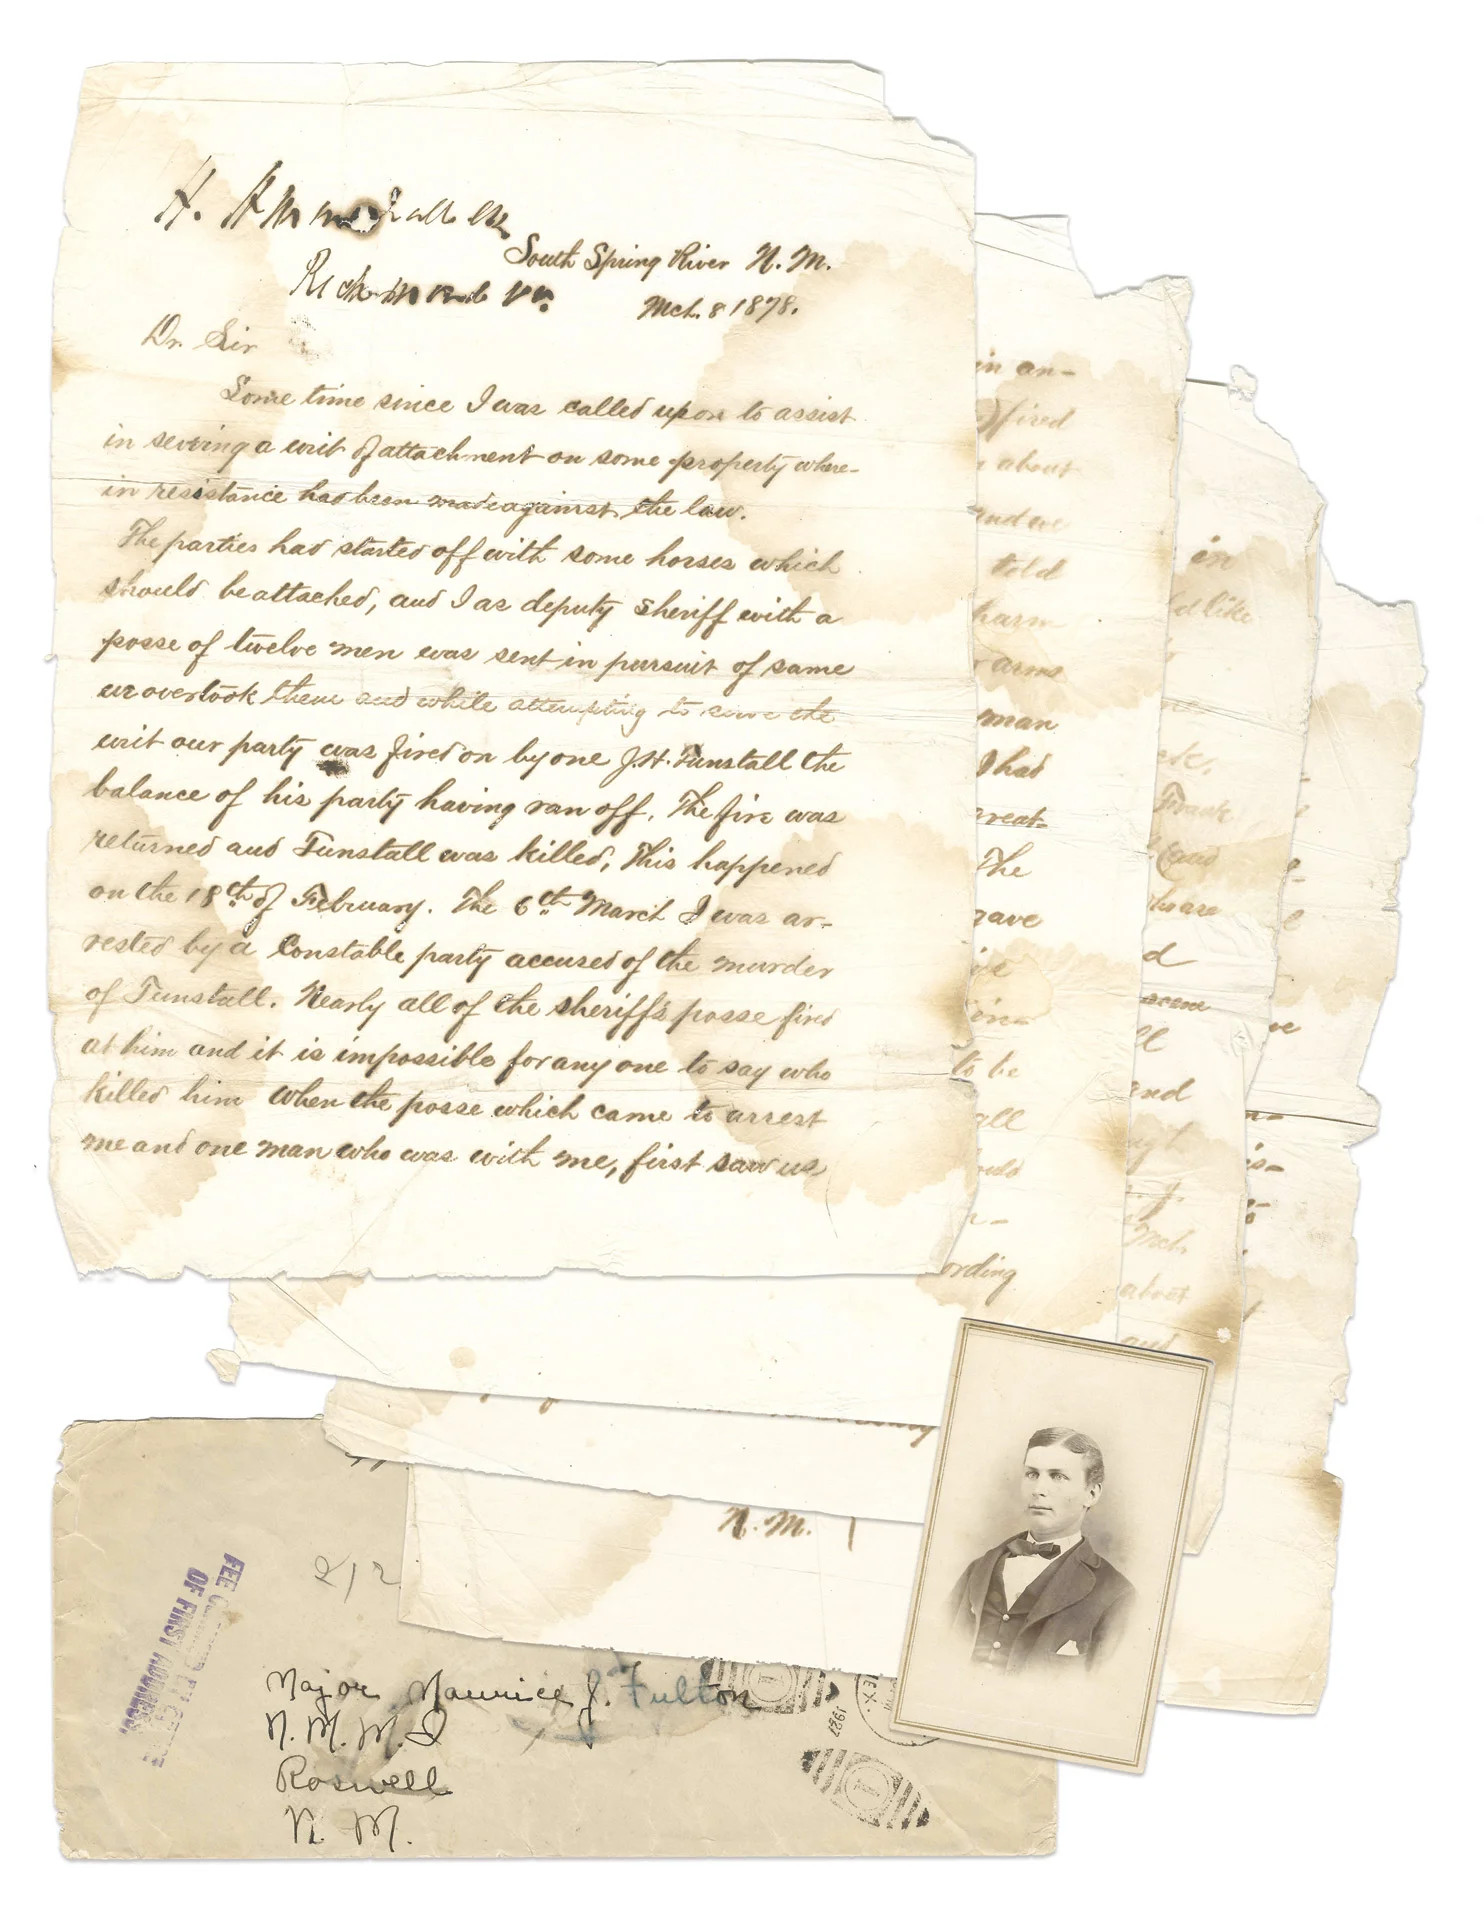 H.
South Spring River N.M.
Richmond Va.
Mch. 8 1878.
Dr. Sir
Some time since I was called upon to assist
in serving a writ of attachment on some property where-
in resistance had been made against the law.
The parties had started off with some horses which
should be attached, and I as deputy sheriff with a
posse of twelve men was sent in pursuit of same
we overtook them and while attempting to serve the
writ our party was fired on by one J.H. Tunstall the
balance of his party having ran off. The fire was
returned and Tunstall was killed, This happened
on the 18th of February. The 6th March I was ar-
rested by a Constable party accused of the murder
of Tunstall. Nearly all of the sheriff's posse fired
at him and it is impossible for any one to say who
killed him When the posse which came to arrest
me and one man who was with me, first saw us
in an-
fired
about
and we
told
harm
arms
man
I had
great-
The
gave
in-
to be
all
ould
ording
in
d like
Frank
and
d
scene
ll
and
Mch.
about
and
N.M.
212
FEE
OF FIRST ADDRESS.
Major Maurice J. Fulton
N.M.M.I
Roswell
N. M.
TEX.
1927